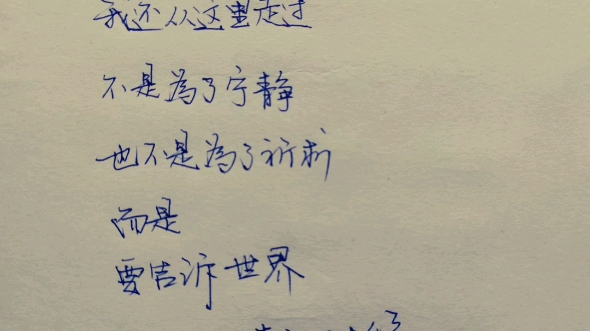 我还从这里走过
不是為了宁静
也不是為了祈求
而是
要告诉世界